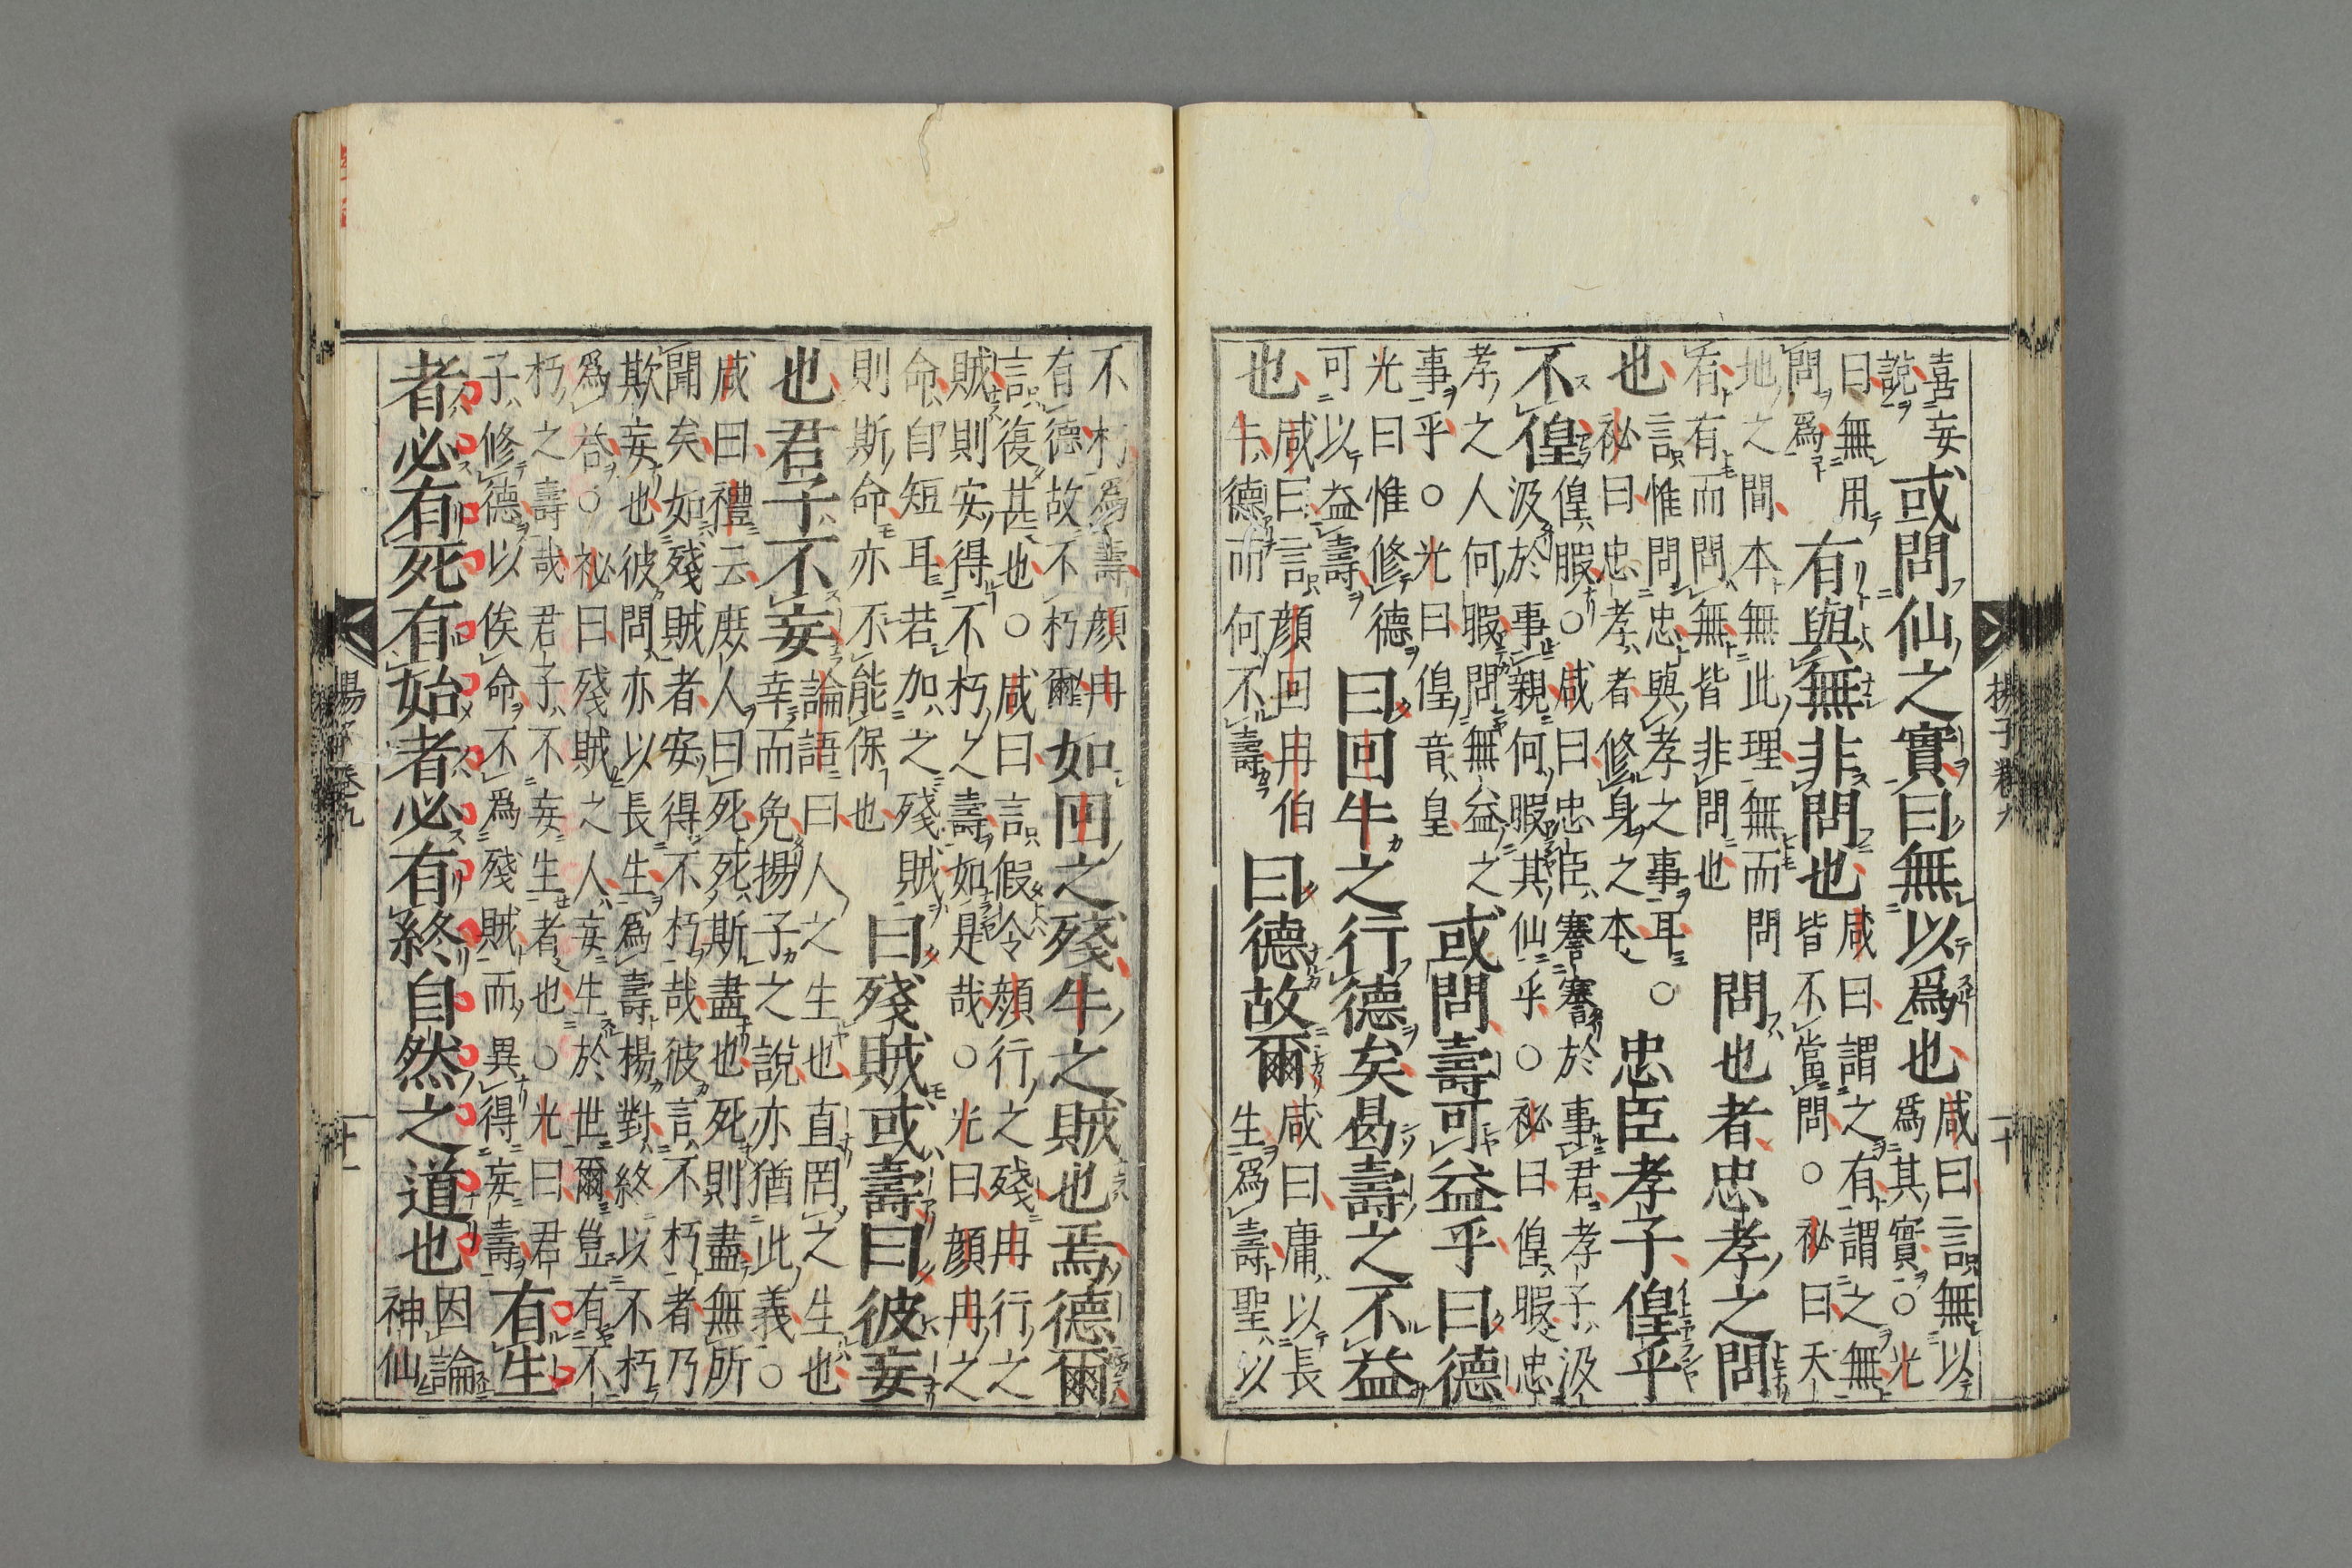 喜妄
說
或問仙之實曰無以爲也
咸曰言無以
爲其實○光
曰無用
問爲
有與無非問也
咸曰謂之有謂之無
皆不當問○祕曰天
地之間本無此理無而問
有有而問無皆非問也
問也者忠孝之問
也
言惟問忠與孝之事耳○
祕曰忠孝者修身之本
忠臣孝子偟乎
不偟
偟暇○咸曰忠臣謇謇於事君孝子汲
汲於事親何暇其仙乎○祕曰偟暇忠
孝之人何暇問無益之
事乎○光曰偟音皇
或問壽可益乎曰德
光曰惟修德
可以益壽
曰回牛之行德矣曷壽之不益
也
咸曰言顏回冉伯
牛德而何不壽
曰德故爾
咸曰庸以長
生爲壽聖以
不朽爲壽顏冉
有德故不朽爾
如回之殘牛之賊也焉德爾
言復甚也○咸曰言假令顏行之殘冉行之
賊則安得不朽之壽如是哉○光曰顏冉之
命自短耳若加之殘賊
則斯命亦不能保也
曰殘賊或壽曰彼妄
也君子不妄
論語曰人之生也直罔之生也
幸而免揚子之說亦猶此義○
咸曰禮云庶人曰死死斯盡也死則盡無所
聞矣如殘賊者安得不朽哉彼言不朽者乃
欺妄也彼問亦以長生爲壽楊對終以不朽
爲荅○祕曰殘賊之人妄生於世爾豈有不
朽之壽哉君子不妄生者也○光曰君
子修德以俟命不爲殘賊而異得妄壽
有生
者必有死有始者必有終自然之道也
因論
神仙